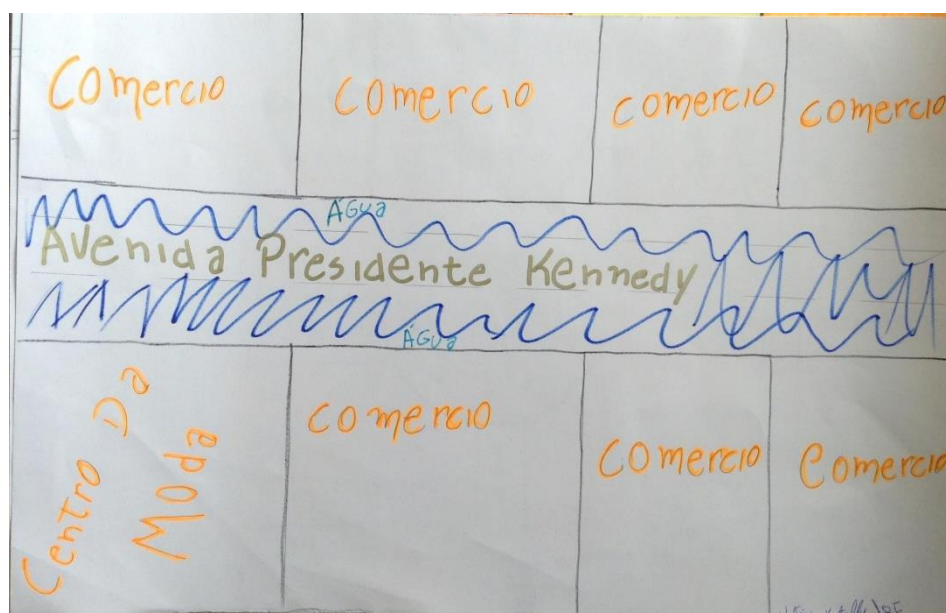 Comercio
Comercio
Comercio
Comercio
Água
Avenida Presidente Kennedy
Água
Centro Da
Moda
Comercio
Comercio
Comercio